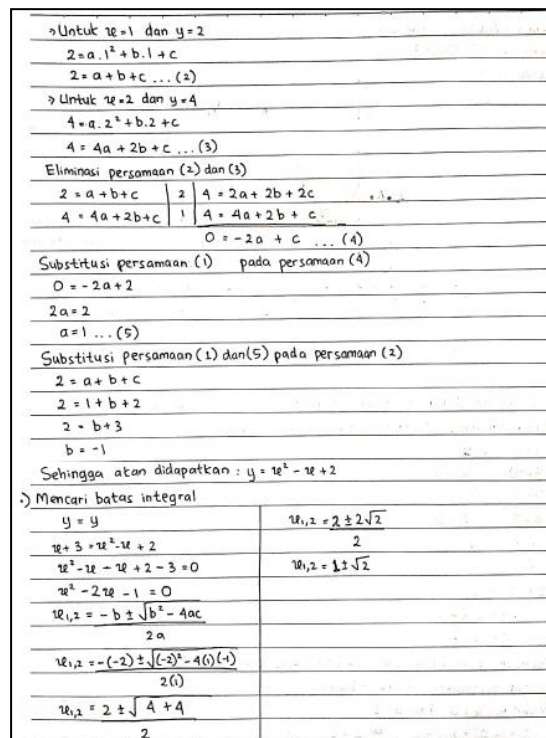 > Untuk x=1 dan y=2
2=a.1²+b.1+c
2=a+b+c ...(2)
> Untuk x=2 dan y=4
4=a.2²+b.2+c
4=4a+2b+c ...(3)
Eliminasi persamaan (2) dan (3)
2=a+b+c | 2 | 4=2a+2b+2c
4=4a+2b+c | 1 | 4=4a+2b+c
0=-2a+c ...(4)
Substitusi persamaan (1) pada persamaan (4)
0=-2a+2
2a=2
a=1 ...(5)
Substitusi persamaan (1) dan (5) pada persamaan (2)
2=a+b+c
2=1+b+2
2=b+3
b=-1
Sehingga akan didapatkan : y=x²-x+2
.) Mencari batas integral
y=y
x+3=x²-x+2
x²-x-x+2-3=0
x²-2x-1=0
x1,2 = -b±√b²-4ac
2a
x1,2 = -(-2)±√(-2)²-4(1)(-1)
2(1)
x1,2 = 2±√4+4
2
x1,2 = 2±2√2
2
x1,2 = 1±√2